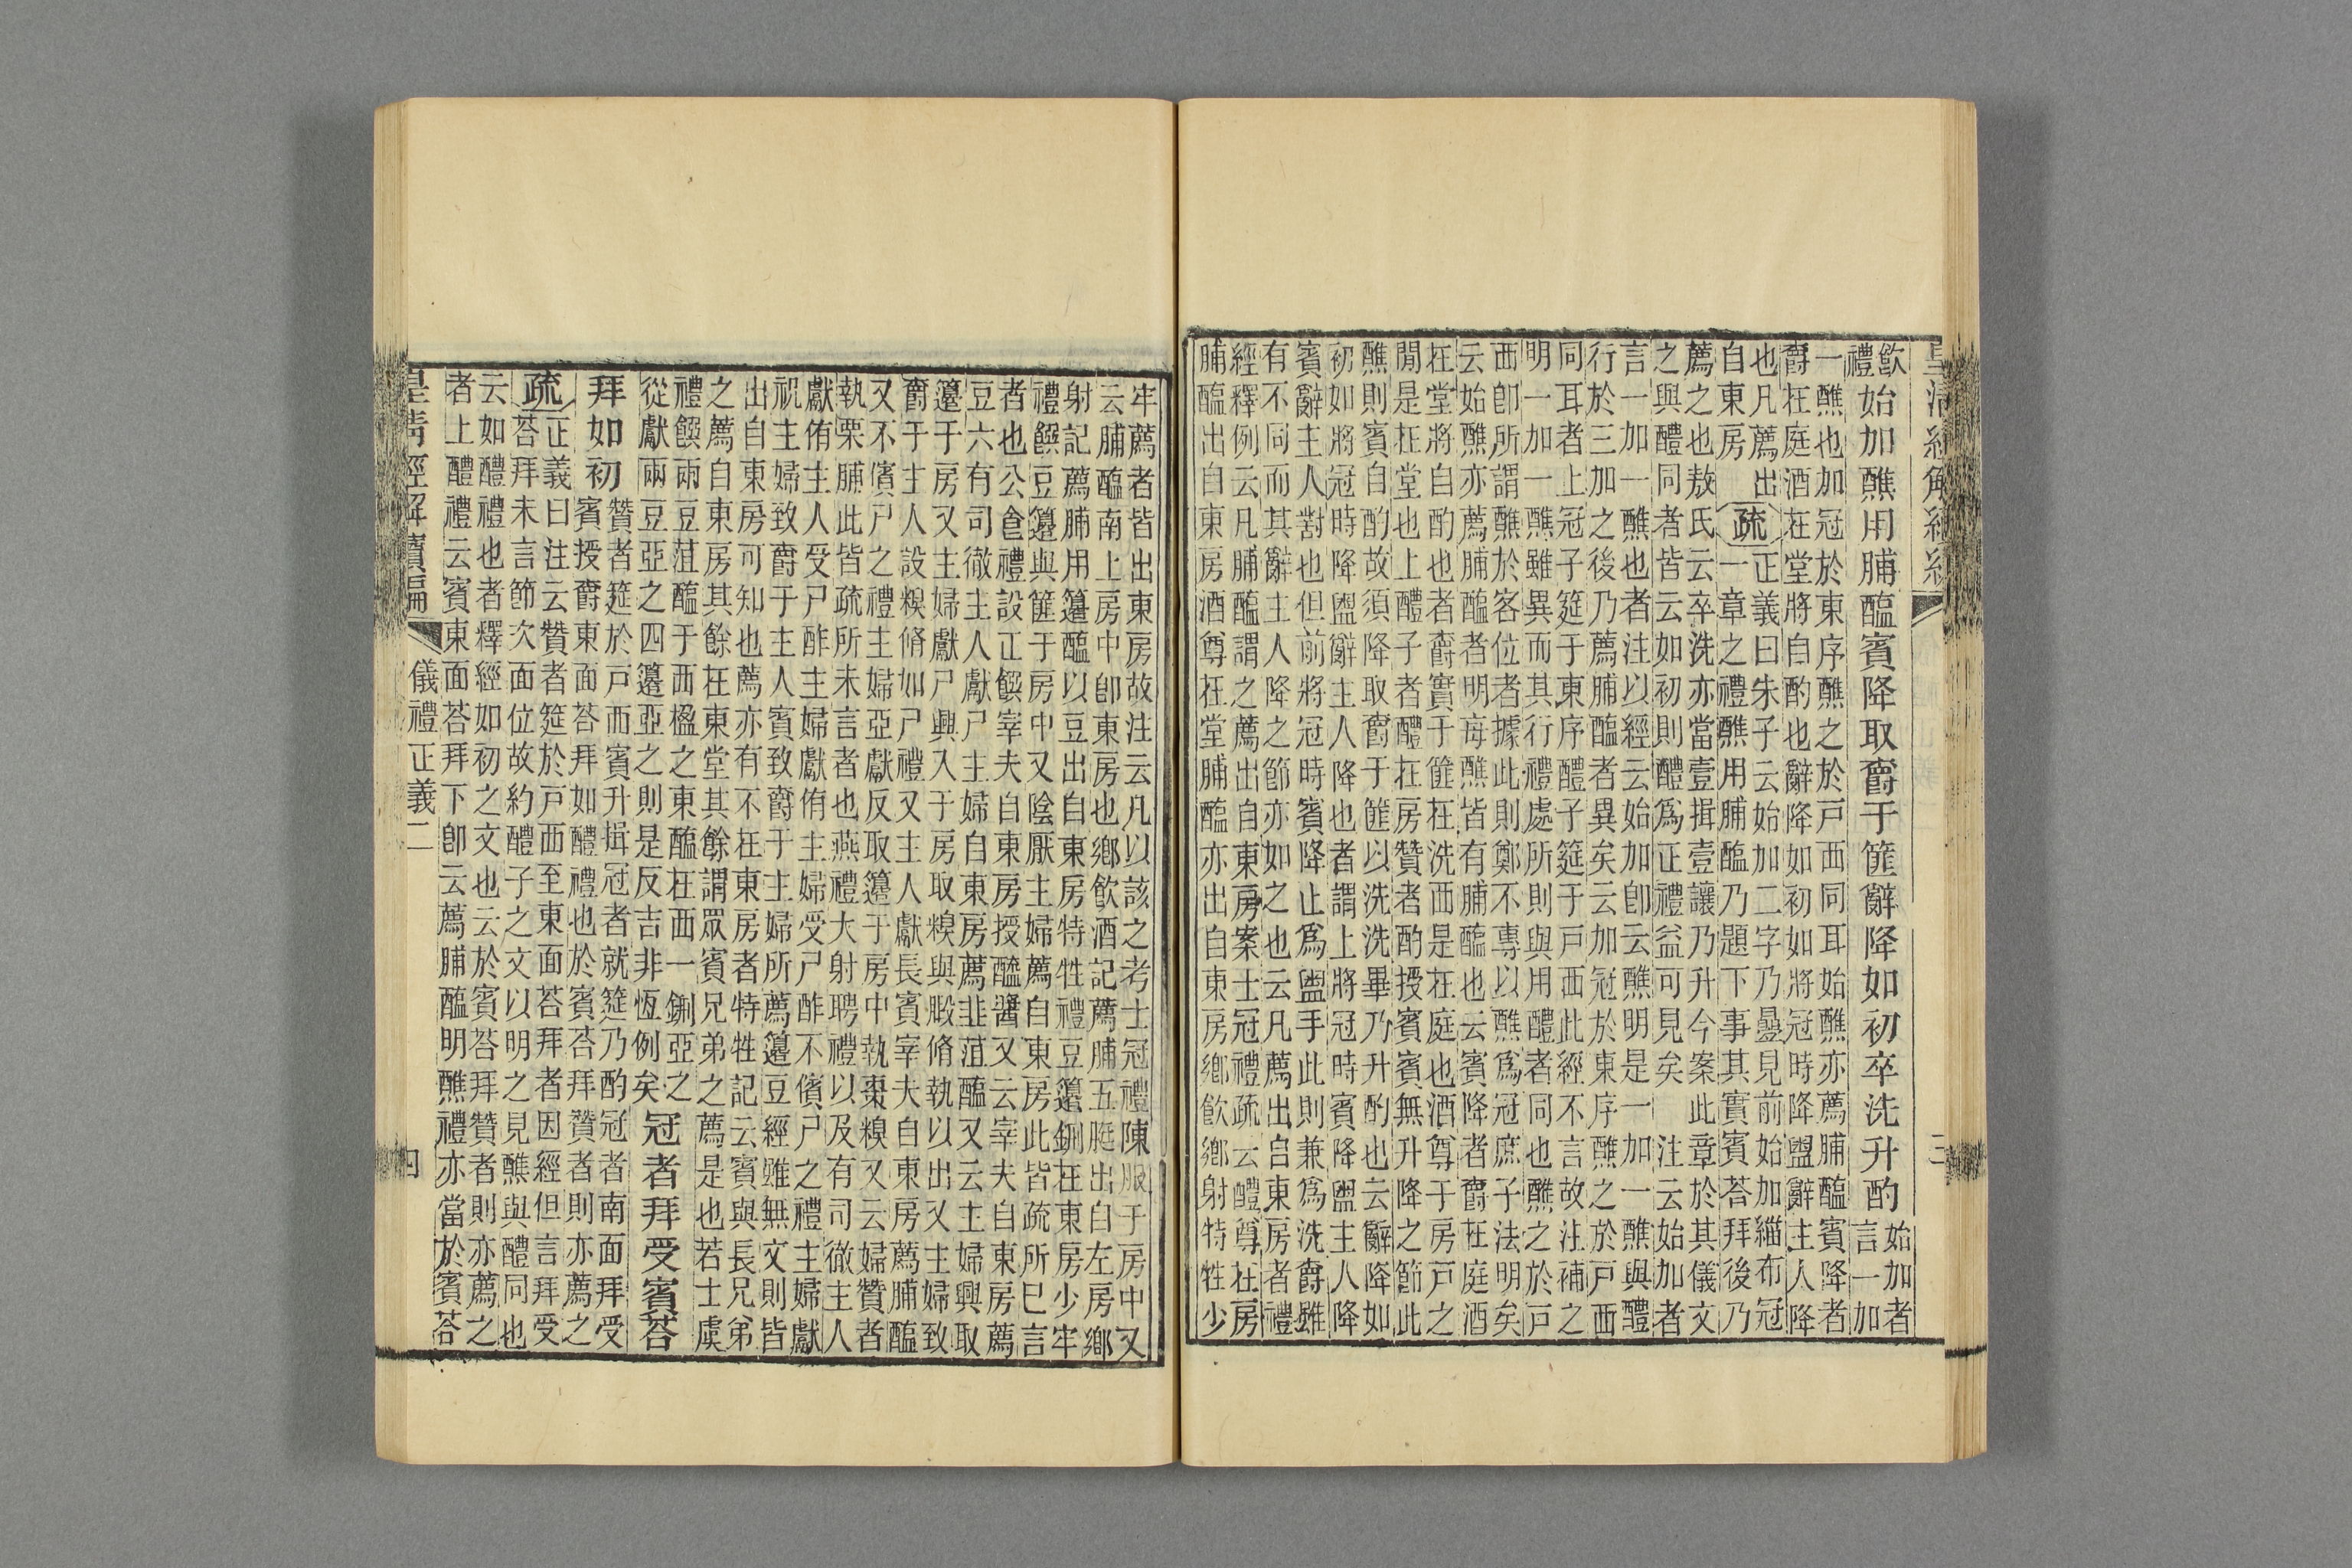 皇清經解續編
三
飲
禮
始加醮用脯醢賓降取爵于篚辭降如初卒洗升酌
始加者
言一加
一醮也加冠於東序醮之於戶西同耳始醮亦薦脯醢賓降者
爵在庭酒在堂將自酌也辭降如初如將冠時降盥辭主人降
也凡薦出
自東房
疏
正義曰朱子云始加二字乃疊見前始加緇布冠
一章之禮醮用脯醢乃題下事其實賓荅拜後乃
薦之也敖氏云卒洗亦當壹揖壹讓乃升今案此章於其儀文
之與醴同者皆云如初則醴爲正禮益可見矣 注云始加者
言一加一醮也者注以經云始加卽云醮明是一加一醮與醴
行於三加之後乃薦脯醢者異矣云加冠於東序醮之於戶西
同耳者上冠子筵于東序醴子筵于戶西此經不言故注補之
明一加一醮雖異而其行禮處所則與用醴者同也醮之於戶
西卽所謂醮於客位者據此則鄭不專以醮爲冠庶子法明矣
云始醮亦薦脯醢者明每醮皆有脯醢也云賓降者爵在庭酒
在堂將自酌也者爵實于篚在洗西是在庭也酒尊于房戶之
閒是在堂也上醴子者醴在房贊者酌授賓賓無升降之節此
醮則賓自酌故須降取爵于篚以洗洗畢乃升酌也云辭降如
初如將冠時降盥辭主人降也者謂上將冠時賓降盥主人降
賓辭主人對也但前將冠時賓降止爲盥手此則兼爲洗爵雖
有不同而其辭主人降之節亦如之也云凡薦出自東房者禮
經釋例云凡脯醢謂之薦出自東房案士冠禮疏云醴尊在房
脯醢出自東房酒尊在堂脯醢亦出自東房鄉飲鄉射特牲少
牢薦者皆出東房故注云凡以該之考士冠禮陳服于房中又
云脯醢南上房中卽東房也鄉飲酒記薦脯五脡出自左房鄉
射記薦脯用籩醢以豆出自東房特牲禮豆籩鉶在東房少牢
禮饌豆籩與篚于房中又陰厭主婦薦自東房此皆疏所已言
者也公食禮設正饌宰夫自東房授醯醬又云宰夫自東房薦
豆六有司徹主人獻尸主婦自東房薦韭菹醢又云主婦興取
籩于房又主婦獻尸興入于房取糗與腶脩執以出又主婦致
爵于主人設糗脩如尸禮又主人獻長賓宰夫自東房薦脯醢
又不儐尸之禮主婦亞獻反取籩于房中執棗糗又云婦贊者
執栗脯此皆疏所未言者也燕禮大射聘禮以及有司徹主人
獻侑主人受尸酢主婦獻侑主婦受尸酢不儐尸之禮主婦獻
祝主婦致爵于主人賓致爵于主婦所薦籩豆經雖無文則皆
出自東房可知也薦亦有不在東房者特牲記云賓與長兄弟
之薦自東房其餘在東堂其餘謂眾賓兄弟之薦是也若士虞
禮饌兩豆菹醢于西楹之東醢在西一鉶亞之
從獻兩豆亞之四籩亞之則是反吉非恆例矣
冠者拜受賓荅
拜如初
贊者筵於戶西賓升揖冠者就筵乃酌冠者南面拜受
賓授爵東面荅拜如醴禮也於賓荅拜贊者則亦薦之
疏
正義曰注云贊者筵於戶西至東面荅拜者因經但言拜受
荅拜未言節次面位故約醴子之文以明之見醮與醴同也
云如醴禮也者釋經如初之文也云於賓荅拜贊者則亦薦之
者上醴禮云賓東面荅拜下卽云薦脯醢明醮禮亦當於賓荅
皇清經解續編
儀禮正義二
四